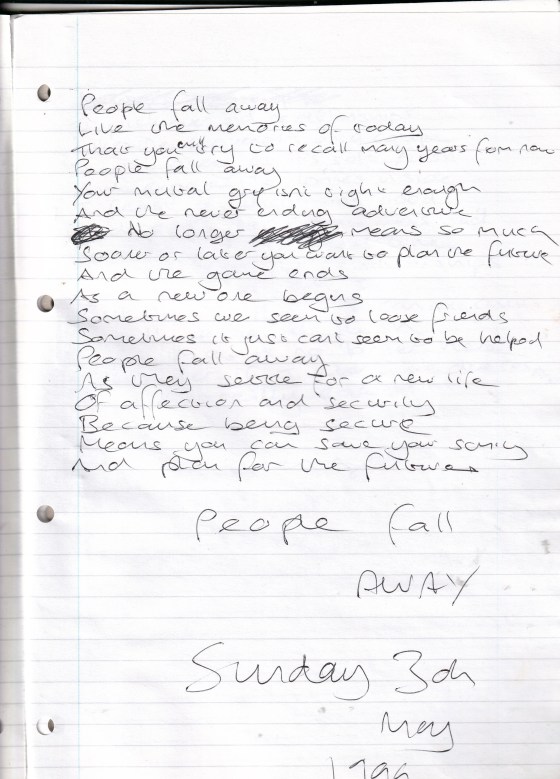 People fall away
Like the memories of today
That you'll try to recall many years from now
People fall away
Your mutual grip isn't tight enough
And the never ending adventure
No longer means so much
Sooner or later you want to plan the future
And the game ends
As a new one begins
Sometimes we seem to loose friends
Sometimes it just cant seem to be helped
People fall away
As they settle for a new life
Of affection and security
Because being secure
Means you can save your sanity
And plan for the future
People fall
AWAY
Sunday 3rd
May